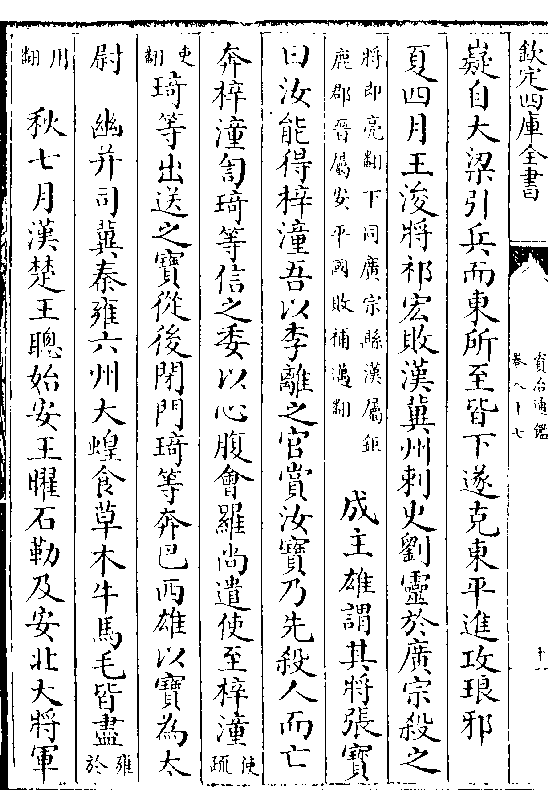 欽定四庫全書
資治通鑑
卷八十七
十一
嶷自大梁引兵而東所至皆下遂克東平進攻琅邪
夏四月王浚將祁宏敗漢冀州刺史劉靈於廣宗殺之
將即亮翻下同廣宗縣漢屬鉅
鹿郡晉屬安平國敗補邁翻
成主雄謂其將張寶
曰汝能得梓潼吾以李離之官賞汝寶乃先殺人而亡
奔梓潼訇琦等信之委以心腹會羅尚遣使至梓潼使疏
吏翻琦等出送之寶從後閉門琦等奔巴西雄以寶為太
尉 幽并司冀秦雍六州大蝗食草木牛馬毛皆盡雍於
用翻 秋七月漢楚王聰始安王曜石勒及安北大將軍